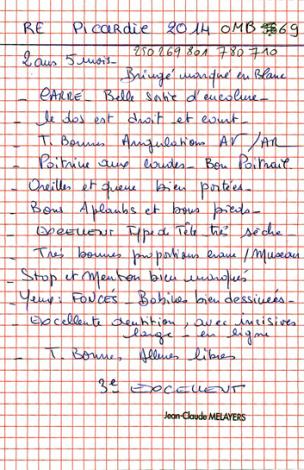 RE Picardie 2014 OMB 69
250269801 780710
2 ans 5 mois -
Bringé marqué en Blanc
- CARRÉ - Belle sortie d'encolure -
- le dos est droit et court -
- T. Bonnes Angulations AV / AR
- Poitrine aux coudes - Bon Poitrail
- Oreilles et queue bien portées -
- Bons Aplombs et bons pieds -
- EXCELLENT Type de Tête très sèche -
- Tres bonnes proportions crane / Museau
- Stop et Menton bien marqués
- Yeux : FONCÉS - Babines bien dessinées -
- Excellente dentition, avec incisives
large - en ligne
- T. Bonnes Allures libres
3e EXCELLENT
Jean-Claude MELAYERS